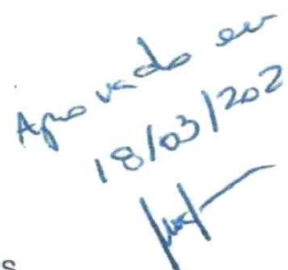 Aprovado em
18/03/202
s